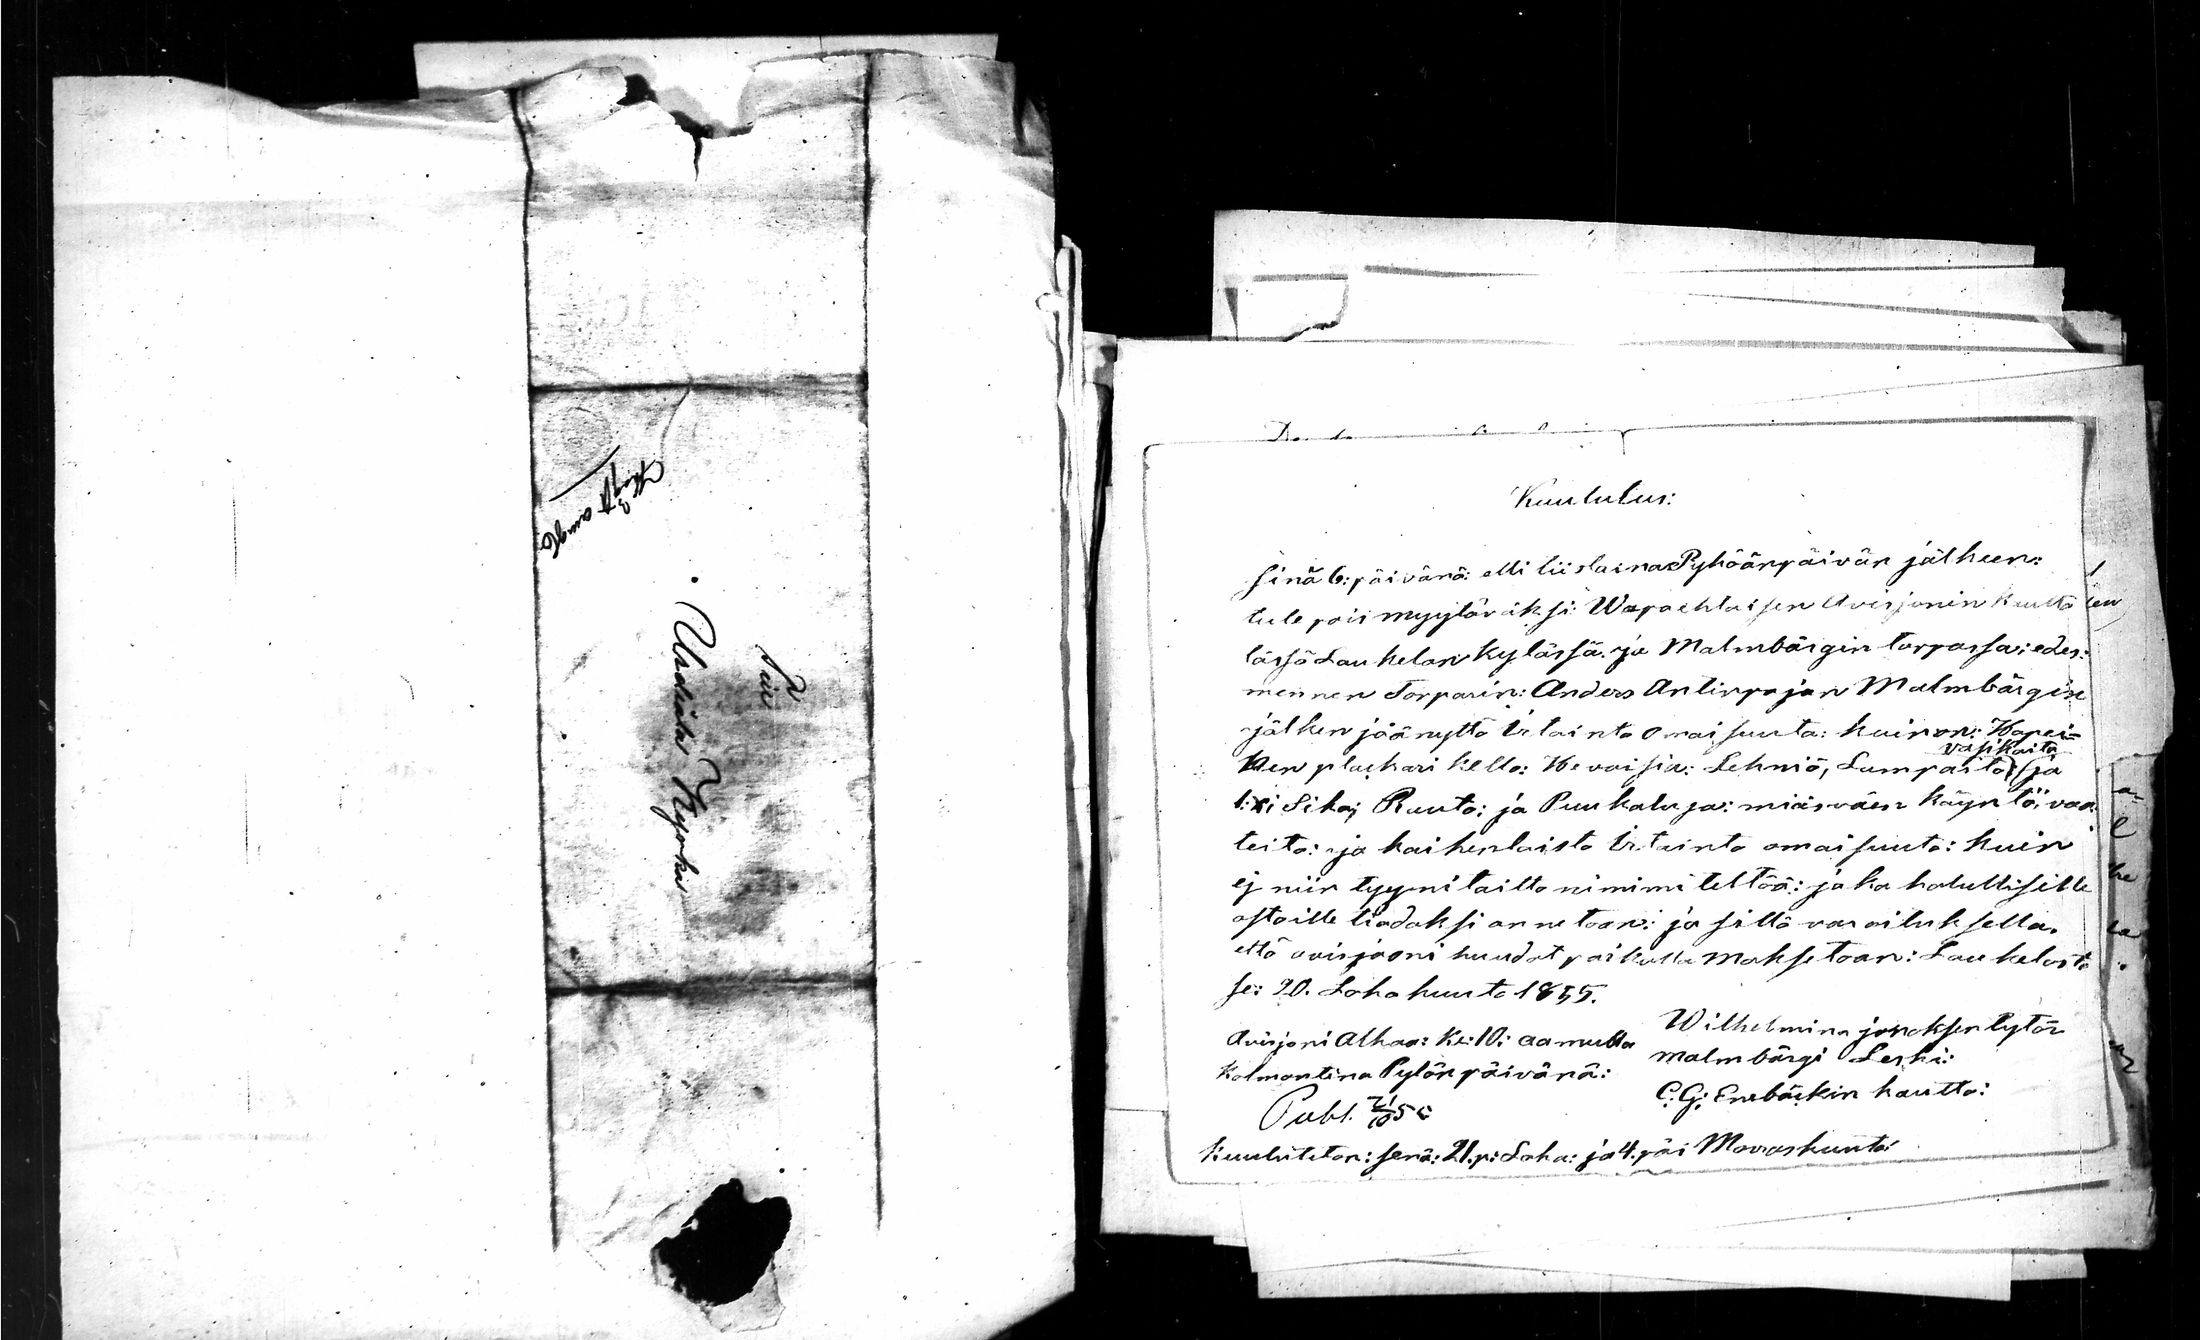 Till
Usdaila Kyrka
Kuulutus:
sinä 6: päivänä: elli tiistaina Pyhäänpäivän jälkeen:
tule pois myytäväksi: Wapaehtaisen Avisjonin kautta
lässä Laukelan kylässä. ja Malmbärgin torpassa: edes:
mennen Torparin: Anders Antinpojan Malmbärgin
jälken jäänyttä irtainta omaisuuta: kuin on: Hopei-
nen plackari kello: Hevoisia: Lehmiä, Lampaita: vasikaita ja
1:xi Sika; Rauta: ja Puukaluja: miäsväen käyntö, vaa
teita: ja kaikenlaista irtainta omaisuuta: kuin
ej niin tyynitailta nimimiteltää: joka halullisille
ostoille tiadoksi annetaan: ja sillä varoituksella.
että avisjooni huudot paikalla maksetaan: Laukelasta
se: 20. Lokakuuta 1855.
Avisjoni Alkaa: kl: 10: aamulla
kolmantina Pylän päivänä:
Wilhelmina jonaksen tytär
Malmbärgi Leski:
C. G: Enebäckin kautta:
Publ. 21/10 55
Kuulutetan: senä: 21. p: Loka: ja 4. päi Marraskuuta: